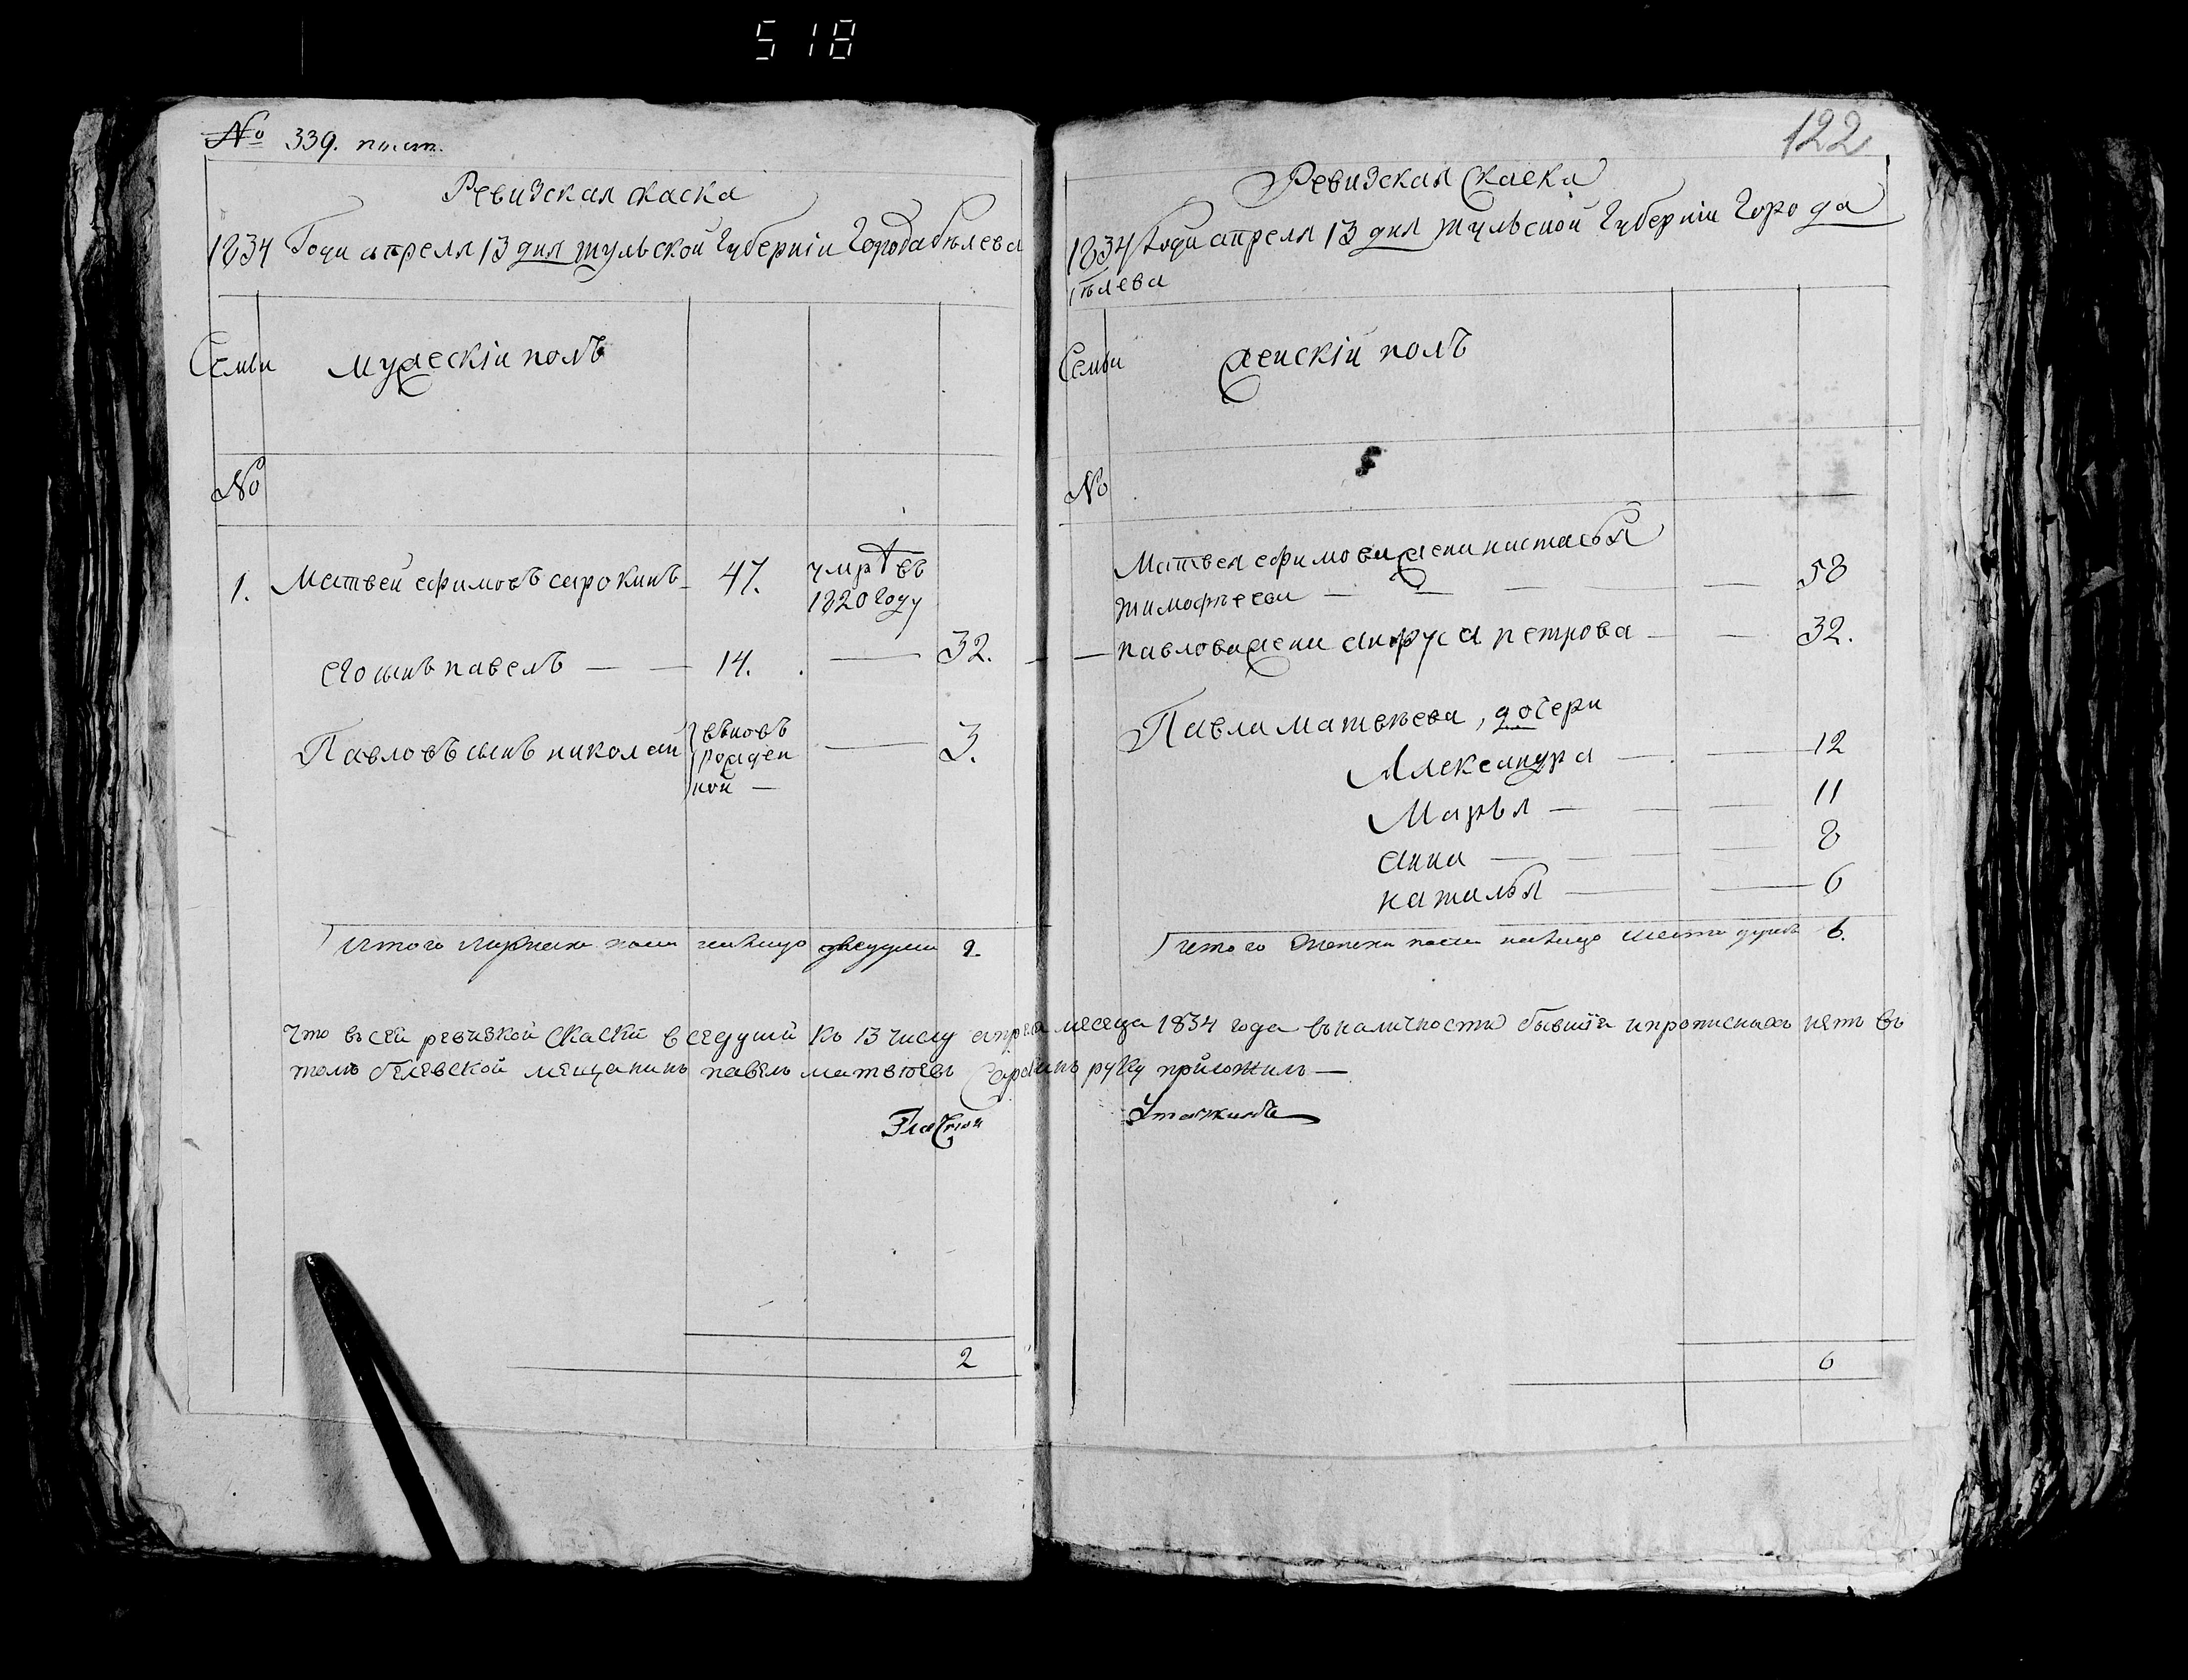 518
№ 339. по ст.
Ревизская скаска
1834 Году апреля 13 дня тульской Губерніи Города бѣлева
Семьи мужескій полъ
№
1. Матвей ефимовъ сарокинъ 47. умръ въ
1820 году
его сынъ павелъ — — 14. — 32.
Павловъ сынъ николаи въновь
рожден — 3.
ной —
Итого мужеска пола налицо две души 2.
2
122
Ревизская Скаска
1834 Году апреля 13 дня тульской Губерніи Города
бѣлева
Семьи женскій полъ
№
Матвея ефимова жена настасья
тимофѣева — — — — 58
— павлова жена петрова — — 32.
Павла матвѣева, дочери
Александра — — 12
Марья — — 11
анна — — — — 8
наталья — — 6
Итого женска пола налицо шесть душъ 6.
Что въ сей ревизкой скаски все души къ 13 числу апреля месеца 1834 года въ наличности бывшія и прописных нетъ въ
томъ белевской мещанинъ павелъ матвеевъ Сарокинъ руку приложилъ —
6